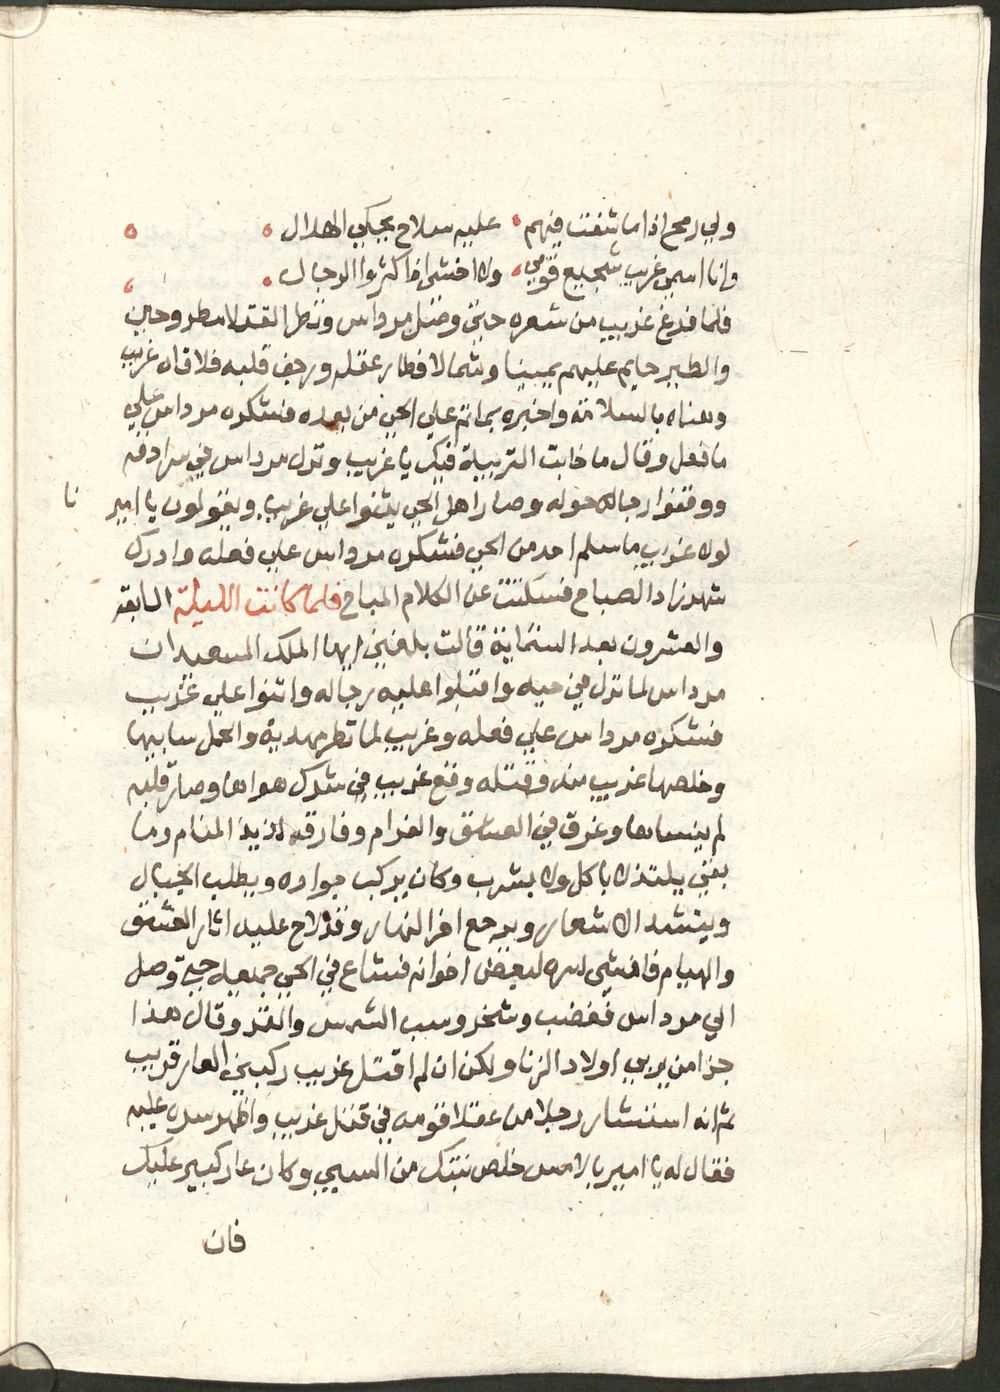 ولي رمح اذا ما شفت فيهم عليه سلاح يحكي الهلال
وانا اسمي غريب شجيع قومي ولا اخشى اذا كثروا الرجال
فلما فرغ غريب من شعره حتى وصل مرداس ونظر القتلا مطروحين
والطير حايم عليهم يمينا وشمالا فطار عقله ورجف قلبه فلاقاه غريب
وهناه بالسلامة واخبره بماتم علي الحي من بعده فشكره مرداس علي
ما فعل وقال ما خابت التربية فيك يا غريب ونزل مرداس في سرادقه
ووقفوا رجاله حوله وصار اهل الحي يثنوا علي غريب ويقولون يا اميرنا
لولا غريب ما سلم احد من الحي فشكره مرداس علي فعله وادرك
شهرزاد الصباح فسكتت عن الكلام المباح فلما كانت الليلة السابعة
والعشرون بعد الستماية قالت بلغني ايها الملك السعيد ان
مرداس لما نزل في حيه واقبلوا عليه رجاله واثنوا علي غريب
فشكره مرداس علي فعله وغريب لما نظر مهدية والحمل سابيها
وخلصها غريب منه وقتله وقع غريب في شرك هواها وصار قلبه
لم ينساها وغرق في العشق والغرام وفارقه لذيذ المنام وما
بقي يلتذ لا باكل ولا بشرب وكان يركب جواده ويطلب الجبال
وينشد الاشعار ويرجع اخر النهار وقد لاح عليه اثار العشق
والهيام فافشى سره لبعض اخوانه فشاع في الحي جميعه حتى وصل
الي مرداس فغضب وشخر وسب الشمس والقمر وقال هذا
جزا من يربي اولاد الزنا ولكن ان لم اقتل غريب ركبني العار قريب
ثم انه استشار رجلا من عقلا قومه في قتل غريب واظهر سره عليه
فقال له يا امير بالامس خلص بنتك من السبي وكان عار كبير عليك
فان